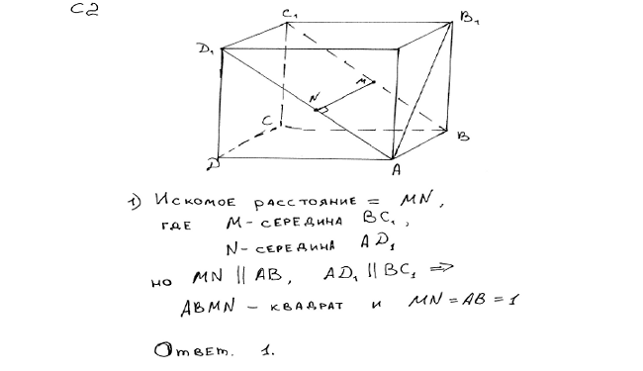 С2
C₁
B₁
D₁
M
N
C
B
D
A
1) Искомое расстояние = MN,
где M - середина BC₁,
N - середина AD₁
но MN || AB, AD₁ || BC₁ ⇒
ABMN - квадрат и MN = AB = 1
Ответ. 1.